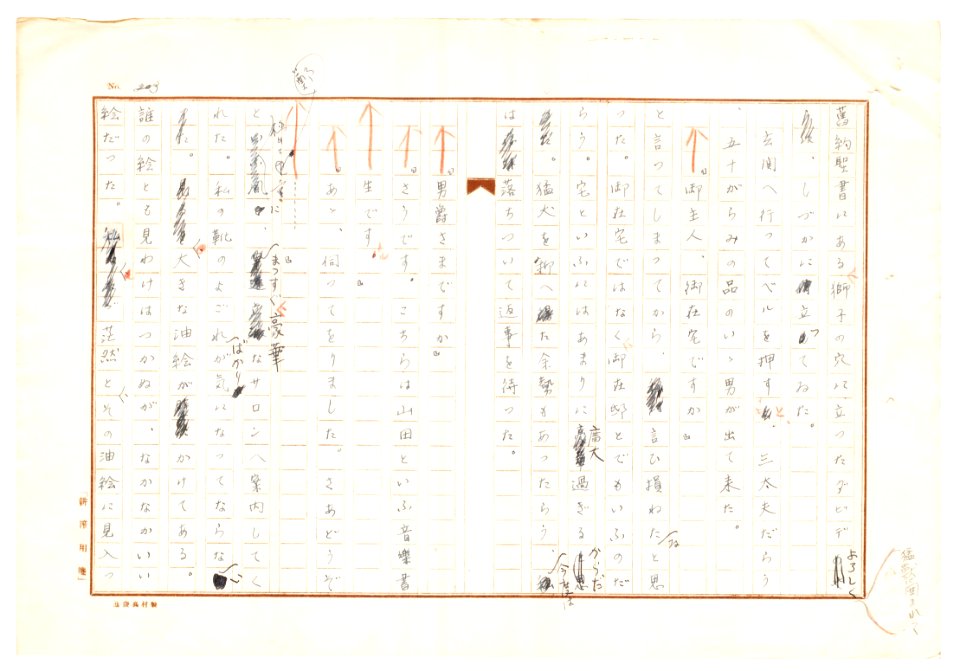 No. 209
舊約聖書にある獅子の穴に立つたダビデ
よろしく
、しづかに立つてゐた。
玄関へ行つてベルを押すと、三太夫だらう
、五十がらみの品のいゝ男が出て来た。
「御主人、御在宅ですか」
と言つてしまつてから、言ひ損ねたと思
つた。御在宅ではなく御在邸とでもいふのだ
らう。宅といふにはあまりに廣大過ぎる
からだ
。猛犬を卸へた余勢もあつたらう、
今度は
は落ちついて返事を待つた。
「男爵さまですか」
「さうです。こちらは山田といふ音樂書
生です」
「あゝ、伺つてをりました。さあどうぞ
」
と
まつすぐ豪華なサロンへ案内してく
れた。私の靴のよごれが気になつてならな
ばかり
い
た。大きな油絵がかけてある。
誰の絵とも見わけはつかぬが、なかなかいい
絵だつた。茫然とその油絵に見入つ